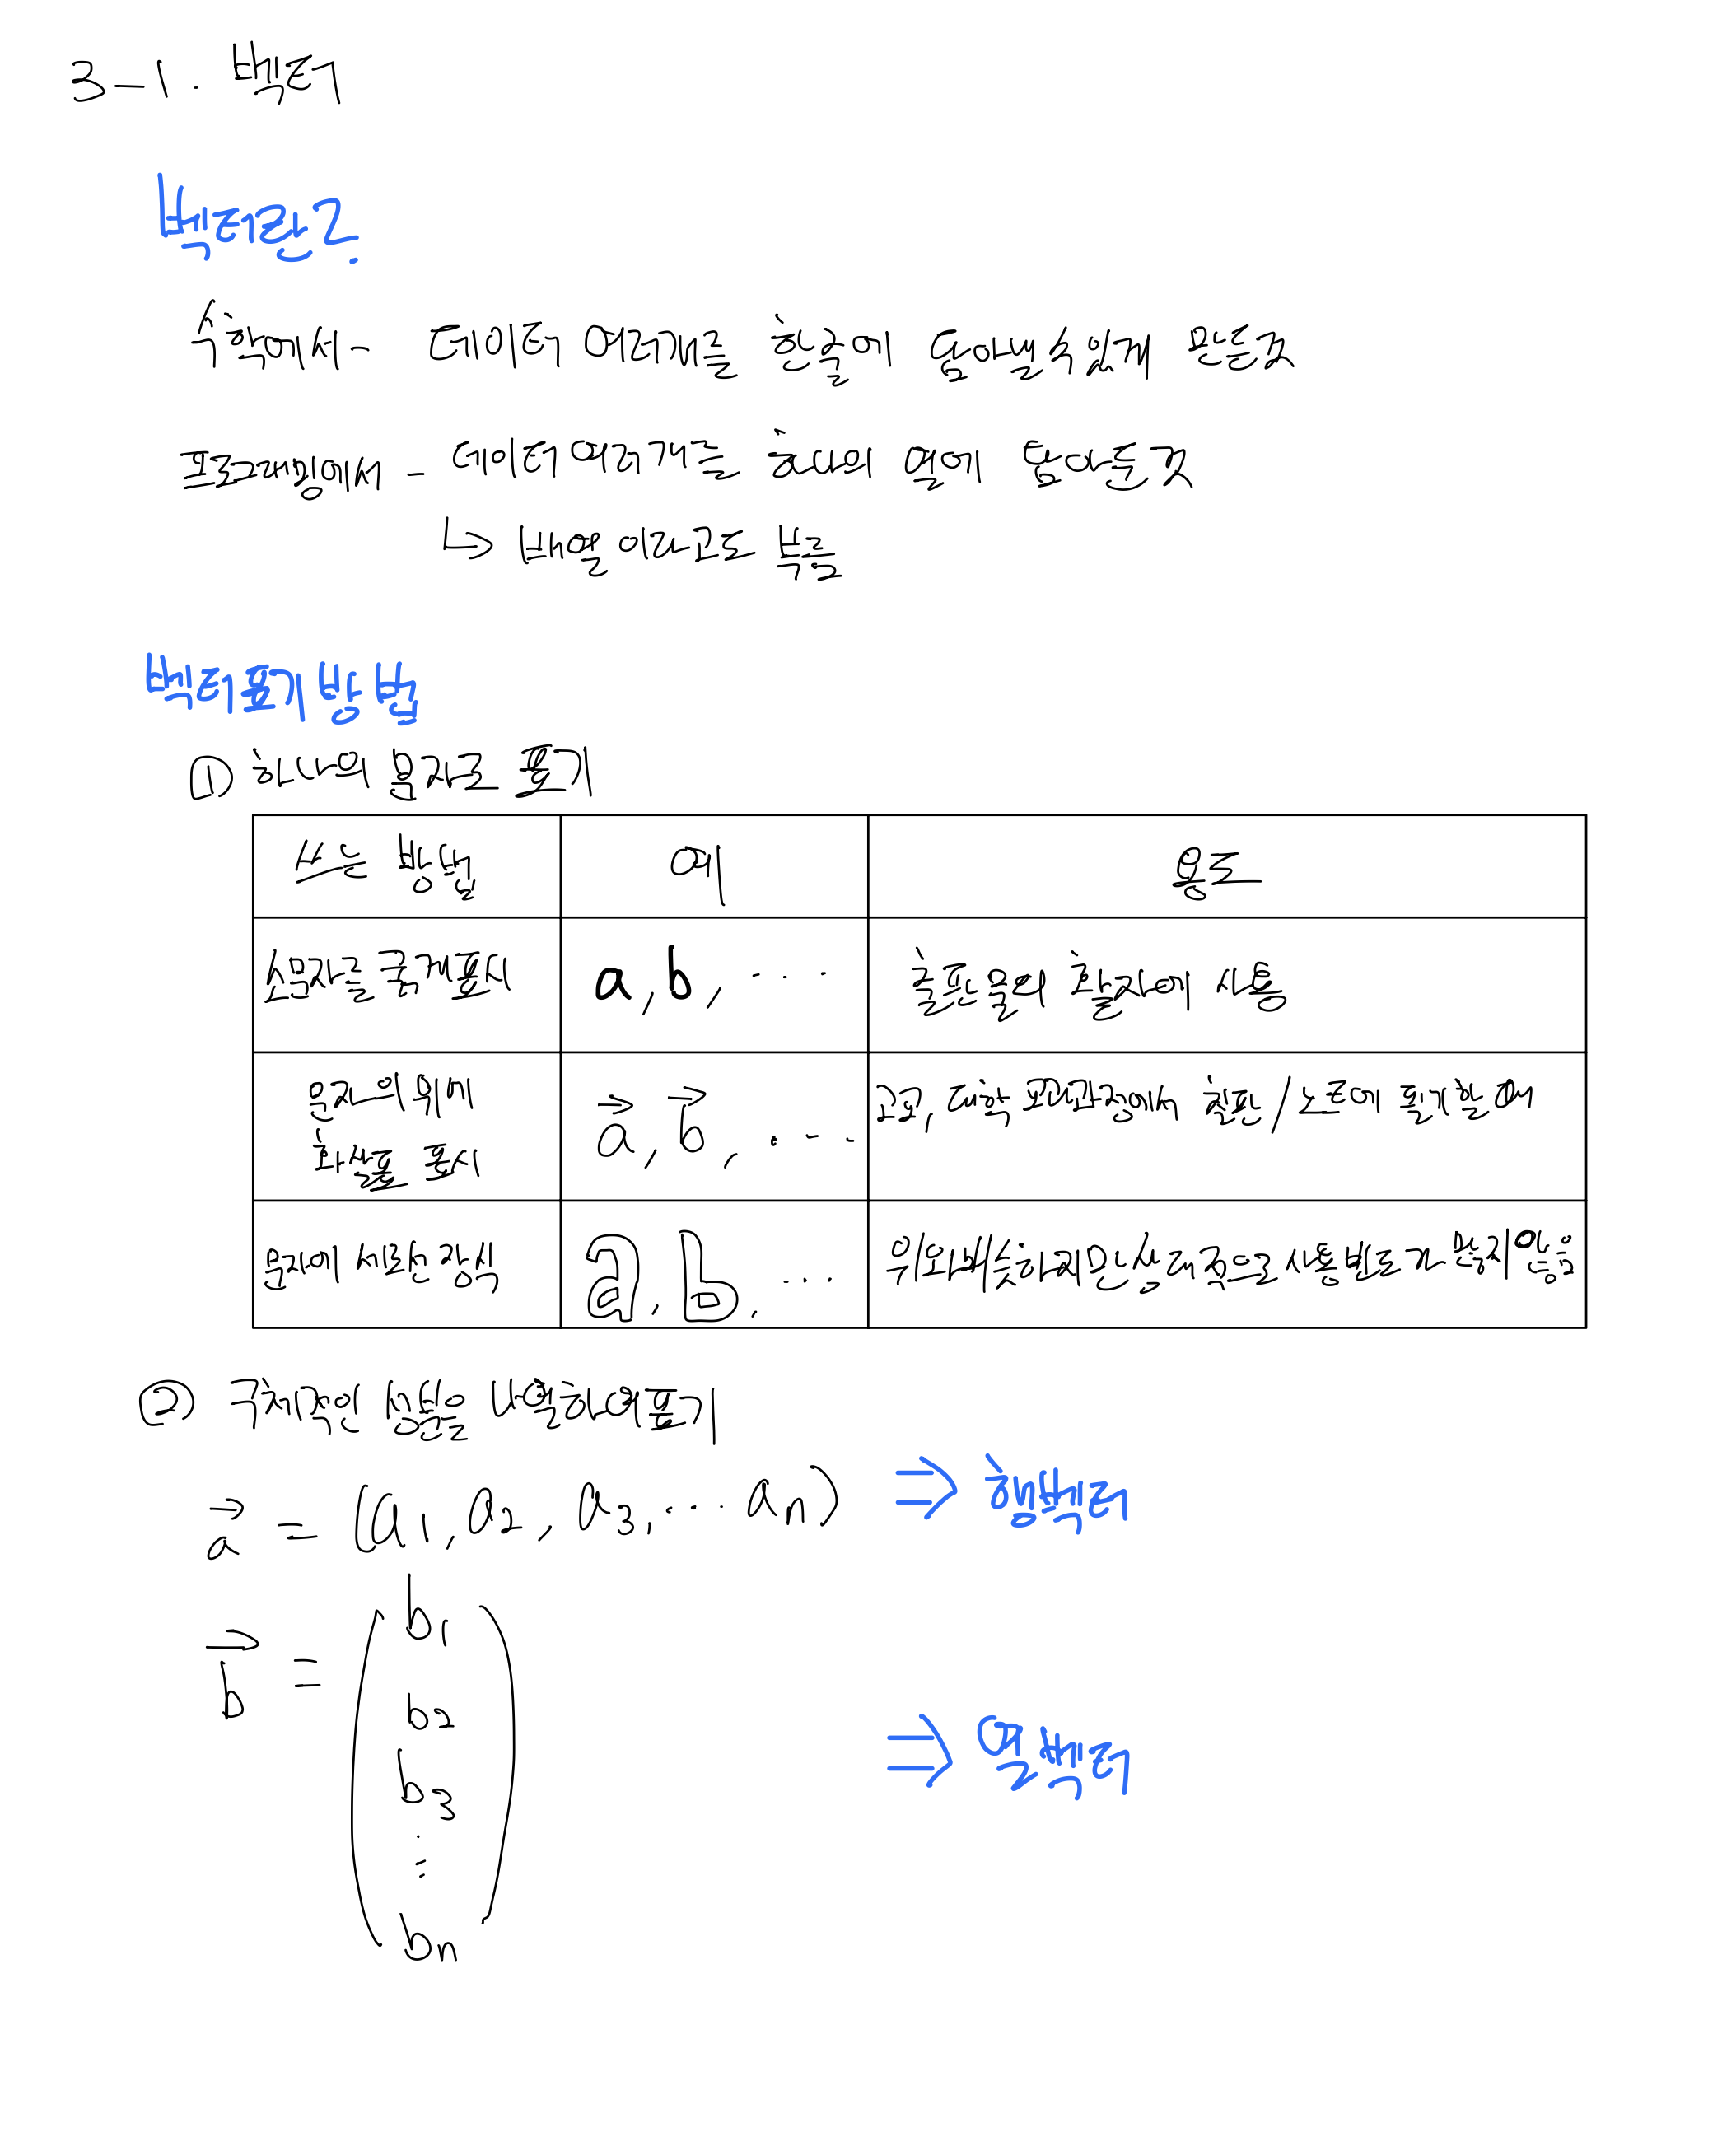 3-1. 벡터
벡터란?
수학에서 - 데이터 여러개를 한줄에 담아낼수있게 만든것
프로그래밍에서 - 데이터 여러개를 하나의 열에 담아둔것
↳ 배열 이라고도 부름
벡터표기방법
① 하나의 문자로 표기
쓰는 방법 예 용도
소문자를 굵게표시 a, b, ... 출판물의 활자에 사용
문자의 위에 화살표 표시 a⃗, b⃗, ... 고교, 대학 교과과정에서 칠판/노트에 필기할 때
문자에 세로선 장식 𝕒, 𝕓, ... 위와 비슷하지만 상대적으로 사용 빈도가 높지 않음
② 구체적인 성분을 나열하여표기
a⃗ = (a₁, a₂, a₃, ... aₙ) ⇒ 행벡터
b⃗ = (
b₁
b₂
b₃
⋮
bₙ
) ⇒ 열벡터